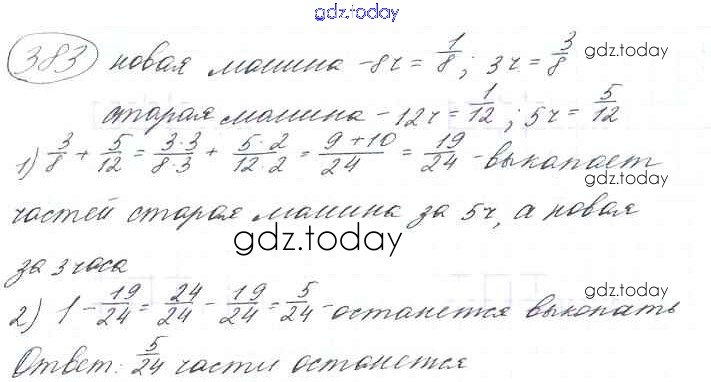 gdz.today
383 новая машина - 8ч = 1/8; 3ч = 3/8
gdz.today
старая машина - 12ч = 1/12; 5ч = 5/12
1) 3/8 + 5/12 = 3·3/8·3 + 5·2/12·2 = 9+10/24 = 19/24 - выкопает
gdz.today
частей старая машина за 5ч, а новая
gdz.today
за 3 часа
gdz.today
2) 1 - 19/24 = 24/24 - 19/24 = 5/24 - останется выкопать
Ответ: 5/24 части останется
gdz.today